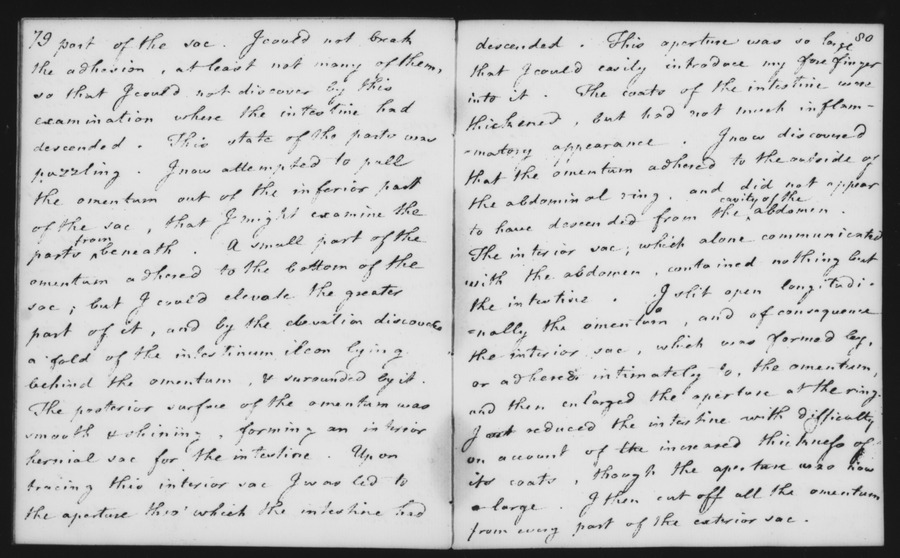 79
part of the sac. I could not break
the adhesion, at least not many of them,
so that I could not discover by this
examination where the intestine had
descended. This state of the parts was
puzzling. I now attempted to pull
the omentum out of the inferior part
of the sac, that I might examine the
from
parts ^ beneath. A small part of the
omentum adhered to the bottom of the
sac; but I could elevate the greater
part of it, and by the elevation discover
a fold of the intestinum ileon lying
behind the omentum, & surounded by it.
The posterior surface of the omentum was
smooth & shining, forming an interior
hernial sac for the intestine. Upon
tracing this interior sac I was led to
the aperture thro' which the intestine had
80
descended. This aperture was so large
that I could easily introduce my fore finger
into it. The coats of the intestine were
thickened, but had not much inflam-
-matory appearance. I now discovered
that the omentum adhered to the outside of
the abdominal ring, and did not appear
cavity of the
to have descended from the ^ abdomen.
The interior sac, which alone communicated
with the abdomen, contained nothing but
the intestine. I slit open longitudi-
-nally the omentum, and of consequence
the interior sac, which was formed by,
or adhered intimately to, the omentum,
and then enlarged the aperture at the ring.
I reduced the intestine with difficulty
on account of the increased thickness of
its coats, though the aperture was now
large. I then cut off all the omentum
from every part of the exterior sac.